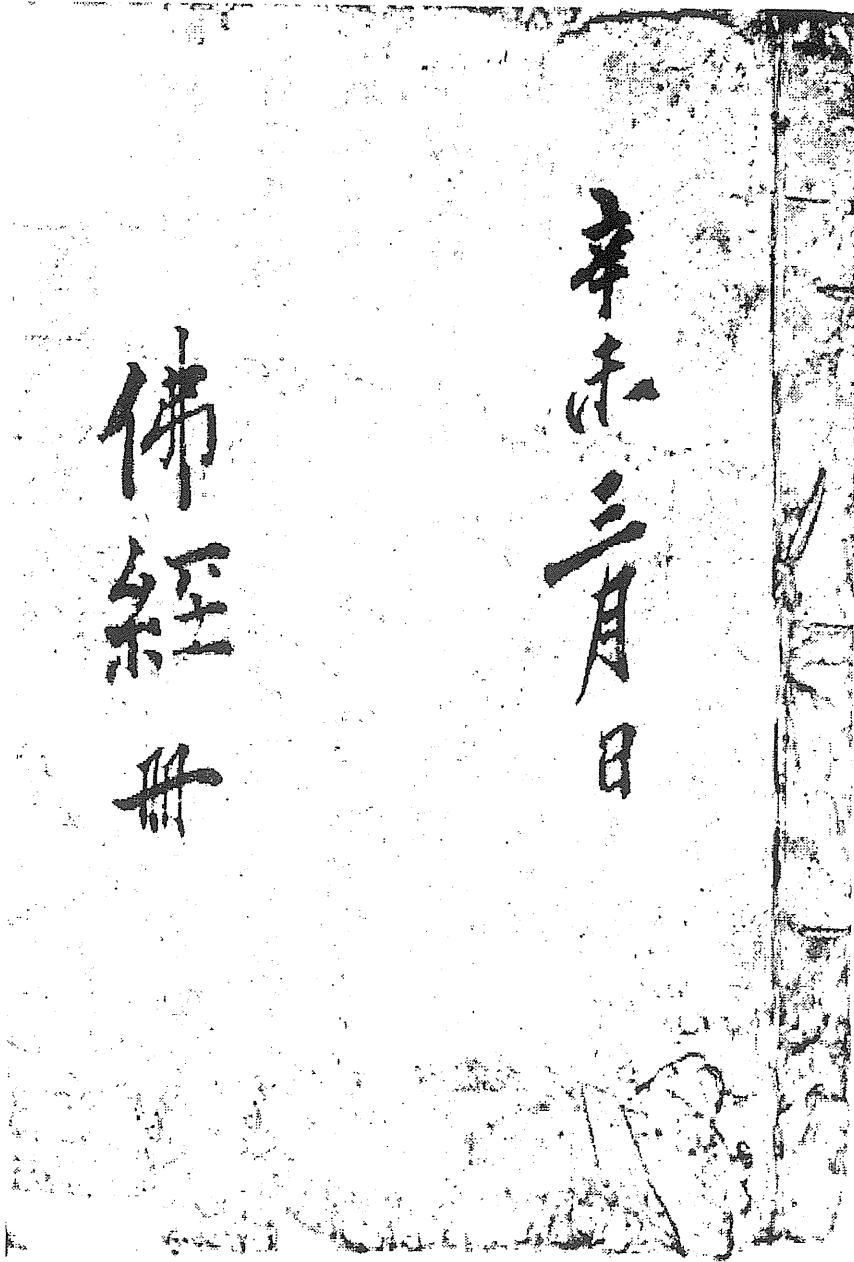 辛未三月日
佛經冊